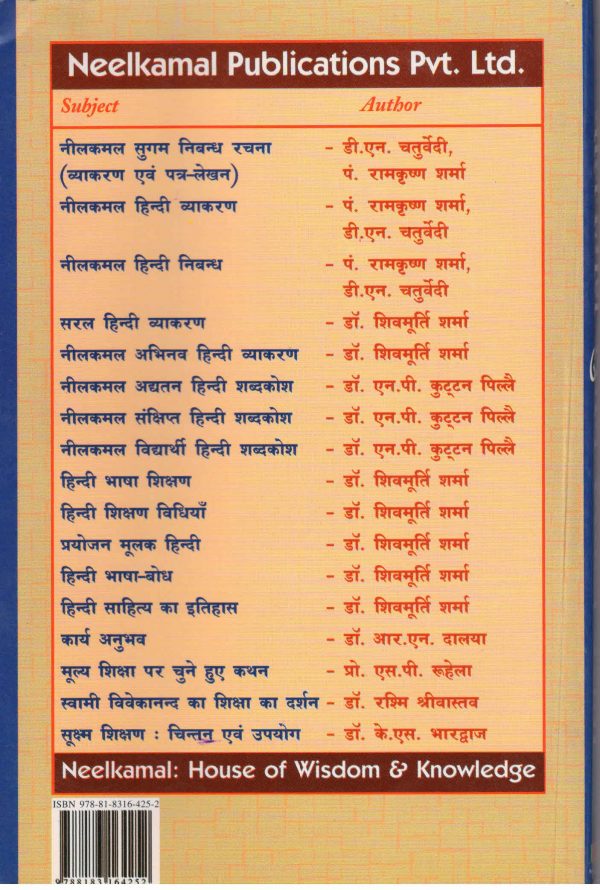 Neelkamal Publications Pvt. Ltd.
Subject Author
नीलकमल सुगम निबन्ध रचना - डी.एन. चतुर्वेदी,
(व्याकरण एवं पत्र-लेखन) पं. रामकृष्ण शर्मा
नीलकमल हिन्दी व्याकरण - पं. रामकृष्ण शर्मा,
डी.एन. चतुर्वेदी
नीलकमल हिन्दी निबन्ध - पं. रामकृष्ण शर्मा,
डी.एन. चतुर्वेदी
सरल हिन्दी व्याकरण - डॉ. शिवमूर्ति शर्मा
नीलकमल अभिनव हिन्दी व्याकरण - डॉ. शिवमूर्ति शर्मा
नीलकमल अद्यतन हिन्दी शब्दकोश - डॉ. एन.पी. कुट्टन पिल्लै
नीलकमल संक्षिप्त हिन्दी शब्दकोश - डॉ. एन.पी. कुट्टन पिल्लै
नीलकमल विद्यार्थी हिन्दी शब्दकोश - डॉ. एन.पी. कुट्टन पिल्लै
हिन्दी भाषा शिक्षण - डॉ. शिवमूर्ति शर्मा
हिन्दी शिक्षण विधियाँ - डॉ. शिवमूर्ति शर्मा
प्रयोजन मूलक हिन्दी - डॉ. शिवमूर्ति शर्मा
हिन्दी भाषा-बोध - डॉ. शिवमूर्ति शर्मा
हिन्दी साहित्य का इतिहास - डॉ. शिवमूर्ति शर्मा
कार्य अनुभव - डॉ. आर.एन. दालया
मूल्य शिक्षा पर चुने हुए कथन - प्रो. एस.पी. रूहेला
स्वामी विवेकानन्द का शिक्षा का दर्शन - डॉ. रश्मि श्रीवास्तव
सूक्ष्म शिक्षण : चिन्तन एवं उपयोग - डॉ. के.एस. भारद्वाज
Neelkamal: House of Wisdom & Knowledge
ISBN 978-81-8316-425-2
9788183164252